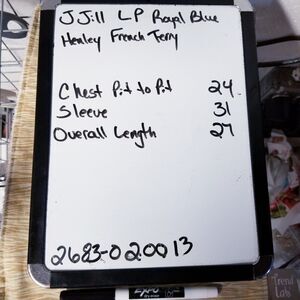 J Jill LP Royal Blue
Henley French Terry
Chest Pit to Pit 24
Sleeve 31
Overall Length 27
2683-020013
EXPO
Trend Lab